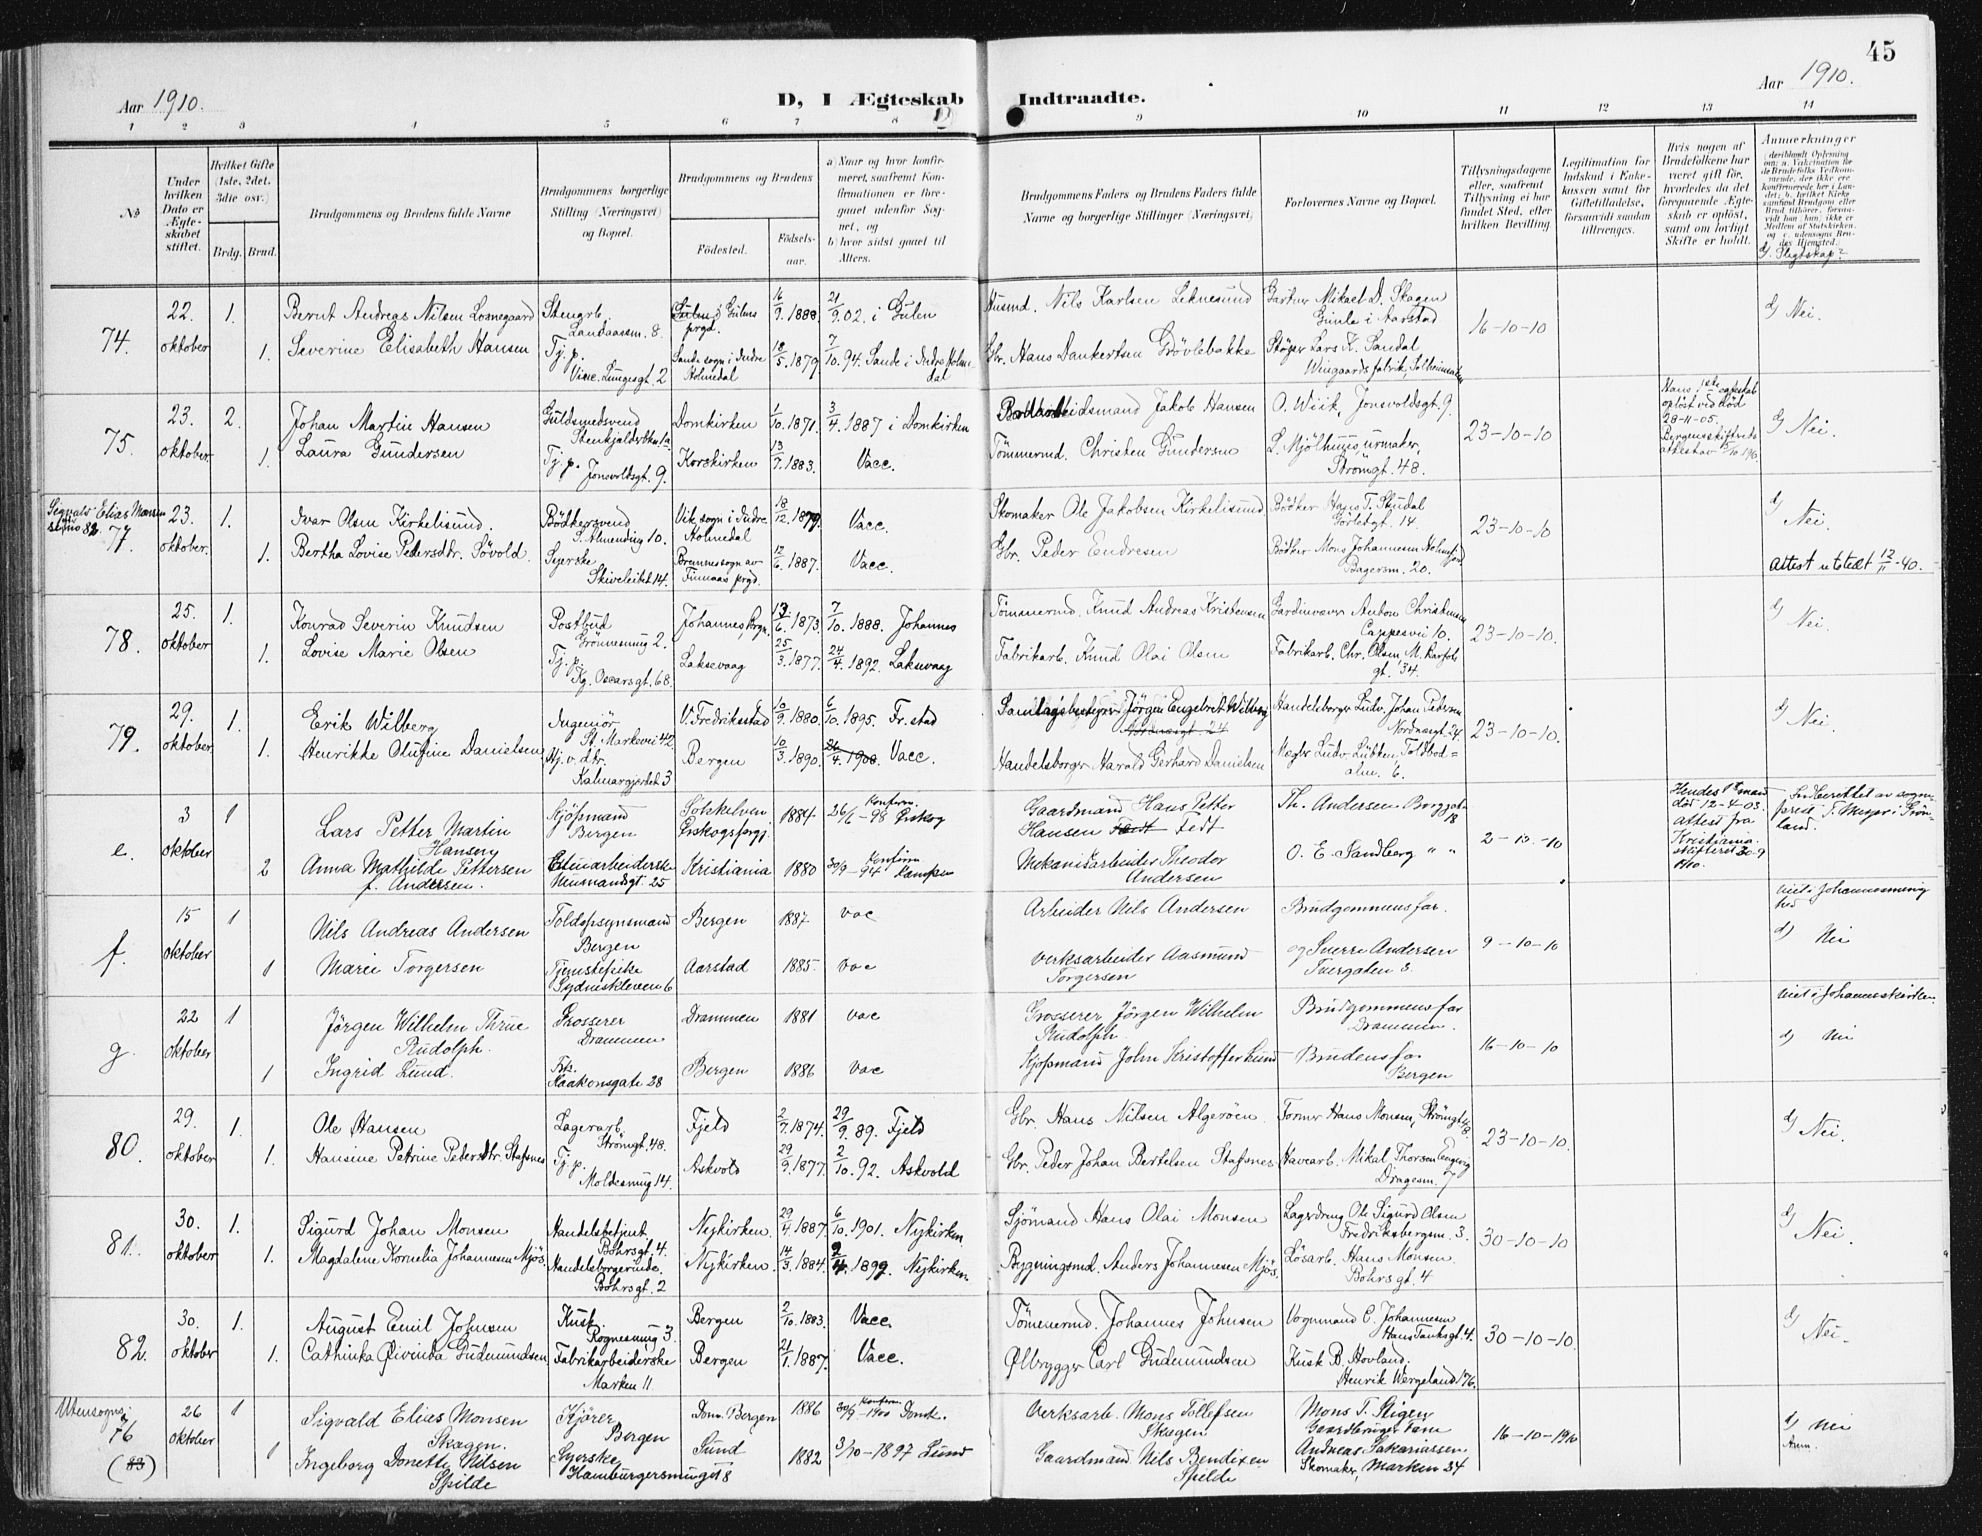 45
Aar 1910.
D, I Ægteskab Indtraadte.
Aar 1910.
1 2 3 4 5 6 7 8 9 10 11 12 13 14
No
Under hvilken Dato er Ægteskabet stiftet.
Hvilket Gifte (1ste, 2det, 3die osv.)
Brdg. Brud.
Brudgommens og Brudens fulde Navne
Brudgommens borgerlige Stilling (Næringsvei) og Bopæl.
Brudgommens og Brudens
Födested.
Födselsaar.
a) Naar og hvor konfirmeret, saafremt Konfirmationen er foregaaet udenfor Sognet, og
b) hvor sidst gaaet til Alters.
Brudgommens Faders og Brudens Faders fulde Navne og borgerlige Stillinger (Næringsvei)
Forlovernes Navne og Bopæl.
Tillysningsdagene eller, saafremt Tillysning ei har fundet Sted, efter hvilken Bevilling.
Legitimation for Indskud i Enkekassen samt for Giftetilladelse, forsaavidt saadan tiltrænges.
Hvis nogen af Brudefolkene har været gift før, hvorledes da det foregaaende Ægteskab er opløst, samt om lovligt Skifte er holdt.
Anmærkninger
d/ Slegtskap?
74. 22. oktober 1. Bernt Andreas Nilsen Losnegaard Stengrb. Landaassm. 8 Gulen prgd. 16/9. 1888. 21/9.02. i Gulen Husmd. Nils Karlsen Leknesund Gartner Mikael D. Skagen Gimle i Aarstad 16-10-10 d/ Nei.
1. Severine Elisabeth Hansen Tj. p. Vine. Lungesgt. 2 Sande sogn i Indre Holmedal 18/5. 1879. 7/10. 94. Sande i Indre Holmedal Gbr. Hans Dankertsen Grövlebakke Støper Lars K. Sandal Wingaards fabrik, Solheimsviken
75. 23. oktober. 2. Johan Martin Hansen Guldsmedsvend Domkirken 1/10. 1871. 3/4. 1887 i Domkirken Jakob Hansen O. Wiik, Jonsvoldsgt. 9. 23-10-10 Hans 1ste egteskab opløst ved død 28-11-05. d/ Nei.
1. Laura Gundersen Tj. p. Jonsvoldsgt. 9. Korskirken 13/7. 1883. Vacc. Tömmermd. Christen Gundersen L. Mjölhuus, urmaker, Strömgt. 48.
77. 23. oktober. 1. Ivar Olsen Kirkelisund. Bödkersvend S. Almending 10. Vik, sogn i Indre Holmedal 18/12. 1879. Vacc. Skomaker Ole Jakobsen Kirkelisund Bödker Hans T. Studal 14. 23-10-10 d/ Nei.
1. Bertha Lovise Pedersdtr. Søvold. Syerske Skiveleibt. 14. Bremnes sogn av Finnaas prgd. 12/6. 1887. Vacc. Gbr. Peder Endresen Bödker Mons Johannesen Bagersm. 20. Attest utstedt 12/11-40.
78. 25. oktober 1. Konrad Severin Knudsen Postbud Grönnesmug 2. Johannes, Brgn. 13/6. 1873. 7/10. 1888. Johannes Tömmermd. Knud Andreas Kristensen Gardinvaver Anton Christensen Cappesvei 10. 23-10-10. d/ Nei.
1. Lovise Marie Olsen Tj. p. Kg. Oscarsgt. 68. Laksevaag 25/3. 1877. 24/4. 1892. Laksevaag Fabrikarb. Knud Olai Olsen Fabrikarb. Chr. Olsen M. gt. 34.
79. 29. oktober. 1. Erik Wilberg Ingeniör St. Markevei 42. V. Fredriksstad 10/9. 1880. 6/10. 1895. Fr.stad Jörgen Engebret Wilberg Handelsborger Ludv. Johan Petersen Nordnesgt. 24. 23-10-10. d/ Nei.
1. Henrikke Olufine Danielsen Hj. v. dtr. Kalmargjerdet 3 Bergen 10/3. 1890. 26/4. 1900. Vacc. Handelsborger Harald Gerhard Danielsen Mægler Ludv. Lübken, Toldbodalm. 6.
e. 3 oktober 1 Lars Petter Martin Hansen Kjøpmand Bergen Sökkelven Ørskogs prgj. 1884 26/6-98 Konfirm. Ørskog Gaardmand Hans Petter Hansen Fedt Th. Andersen Borggt. 18 2-10-10 Hendes 1t mand død 12-4-03. attest fra Kristiania skifteret 30-9 1910.
2 Anna Mathilde Pettersen f. Andersen. Neumandsgt. 25 Kristiania 1880 30/9-94 Konfirm. Kampen Mekanikarbeider Theodor Andersen O. E. Sandberg " "
f. 15 oktober 1 Nils Andreas Andersen Toldopsynsmand Bergen Bergen 1887 vac Arbeider Nils Andersen Brudgommens far. 9-10-10 d) Nei
1 Marie Torgersen Tjenestepike Sydneskleven 6 Aarstad 1885. vac Verksarbeider Aasmund Torgersen og Sverre Andersen Tvergaten 3.
g. 22 oktober 1 Jörgen Wilhelm Thrue Rudolph. Grosserer Drammen Drammen 1881 vac Grosserer Jörgen Wilhelm Rudolph Brudgommens far Drammen. 16-10-10 viet i Johanneskirken. d) Nei
1 Ingrid Lund. Haakonsgate 28 Bergen 1886 vac Kjøpmand John Kristoffer Lund Brudens far Bergen
80. 29. oktober 1. Ole Hansen Lagerarb. Strömgt. 48. Fjeld 2/7. 1874. 29/9. 89. Fjeld Gbr. Hans Nilsen Algeröen. Former Hans Monsen, Strömgt. 48. 23-10-10. d/ Nei.
1. Hansine Petrine Pedersdtr. Stafsnes Tj. p. Moldesmug 14. Askvold 29/9. 1877. 2/10. 92. Askvold Gbr. Peder Johan Bertelsen Stafsnes. Havearb. Mikal Thorsen Dragesm. 7
81. 30. oktober 1. Sigurd Johan Monsen Handelsbetjent Bohrsgt. 4. Nykirken. 29/4. 1887. 6/10. 1901. Nykirken. Sjömand Hans Olai Monsen Lagerdreng Ole Sigurd Olsen Fredriksbergsm. 3. 30-10-10 d/ Nei.
1. Magdalene Kornelia Johannesen Mjös. Handelsborgerinde. Bohrsgt. 2 Nykirken. 14/3. 1884. 1899. Nykirken. Bygningsmd. Anders Johannesen Mjös. Lösarb. Hans Monsen. Bohrsgt. 4
82. 30. oktober 1. August Emil Johnsen Kusk. Rognesmug 3. Bergen 2/10. 1883. Vacc. Tömmermd. Johannes Johnsen Vognmand C. Johannesen Hans Tanksgt. 4. 30-10-10. d/ Nei.
1. Cathinka Øivinda Gudmundsen Fabrikarbeiderske Marken 11 Bergen 21/1. 1887. Vacc. Ølbrygger Carl Gudmundsen Kusk B. Hovland. Henrik Wergeland 176.
Utensogns 76 (83) 26 oktober 1 Sigvald Elias Monsen Skagen. Kjörer Bergen Dom. Bergen 1886 30/9-1900 Konfirm. Domk. Verksarb. Mons Tollefsen Skagen Mons T. Steigen 16-10-1910 d) Nei
1 Ingeborg Donette Nilsen Spilde Syerske Hamburgersmuget 8 Sund 1882 3/10-1897 Sund Gaardmand Nils Bendixen Spilde Andreas Sakariassen Skomaker, Marken 34